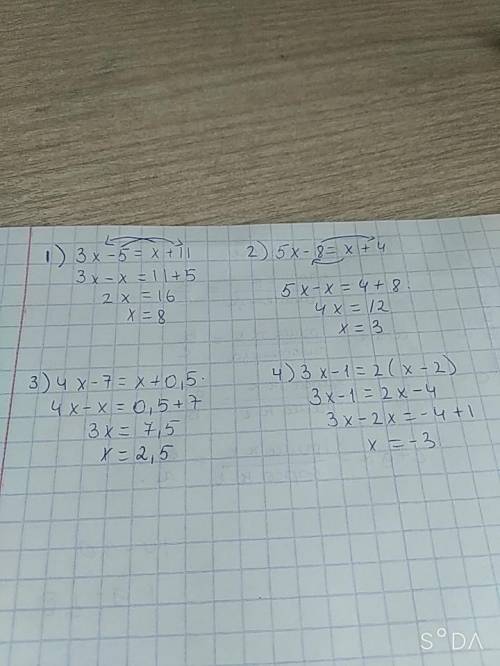 1) 3x-5=x+11
3x-x=11+5
2x=16
x=8
2) 5x-8=x+4
5x-x=4+8
4x=12
x=3
3) 4x-7=x+0,5
4x-x=0,5+7
3x=7,5
x=2,5
4) 3x-1=2(x-2)
3x-1=2x-4
3x-2x=-4+1
x=-3
S°DA